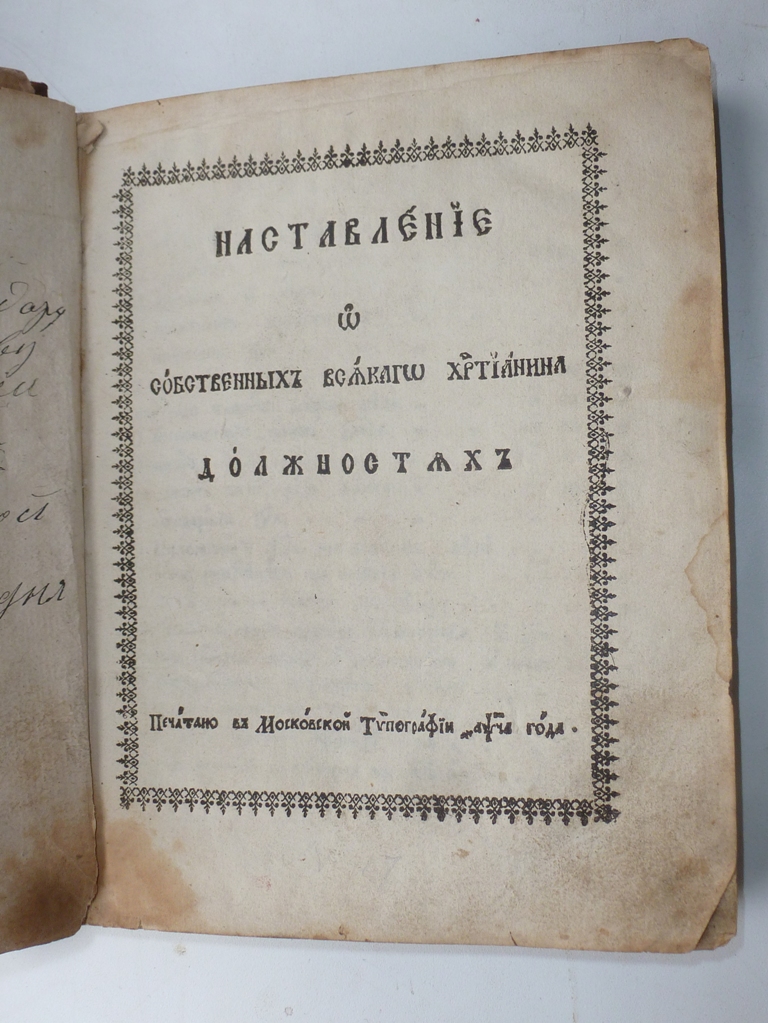 НАСТАВЛЕ́НЇЕ
Ѡ҆
СО́БСТВЕННЫХЪ ВСѦ́КАГѠ ХРⷭ҇ТЇА́НИНА
ДО́ЛЖНОСТѦХЪ
Печа́тано въ Моско́вской Тѷпогра́фїи го́да.
дня